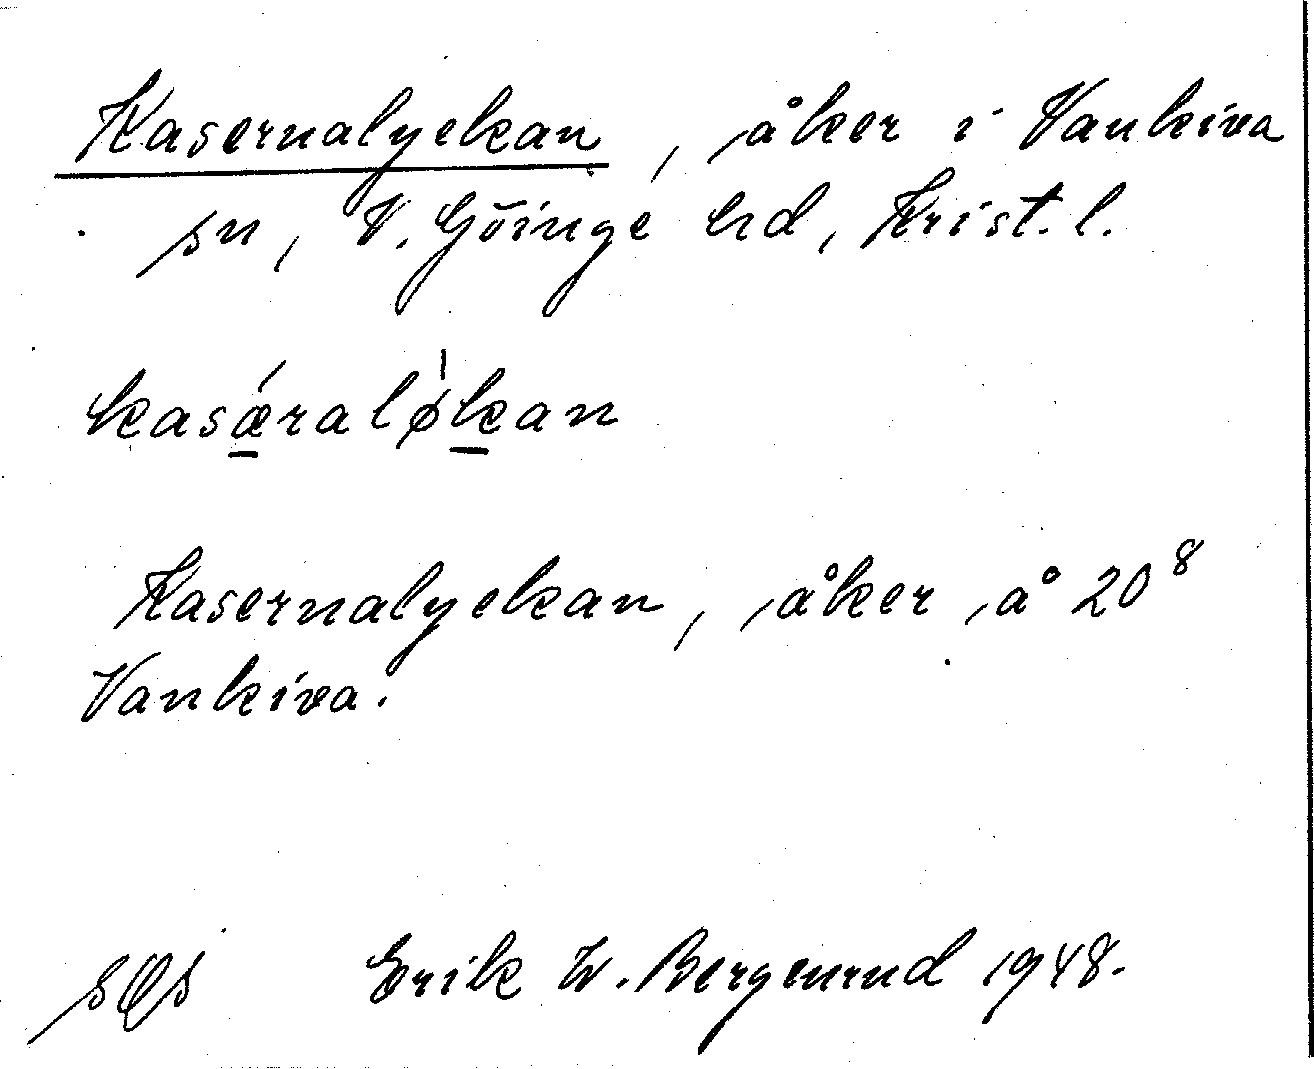 Kasernalyekan, åker i Vankiva
sn, V. Göinge hd, Krist. l.
kasǽralǿkan
Kasernalyekan, åker å 20⁸
Vankiva.
Erik W. Bergenrud 1948.